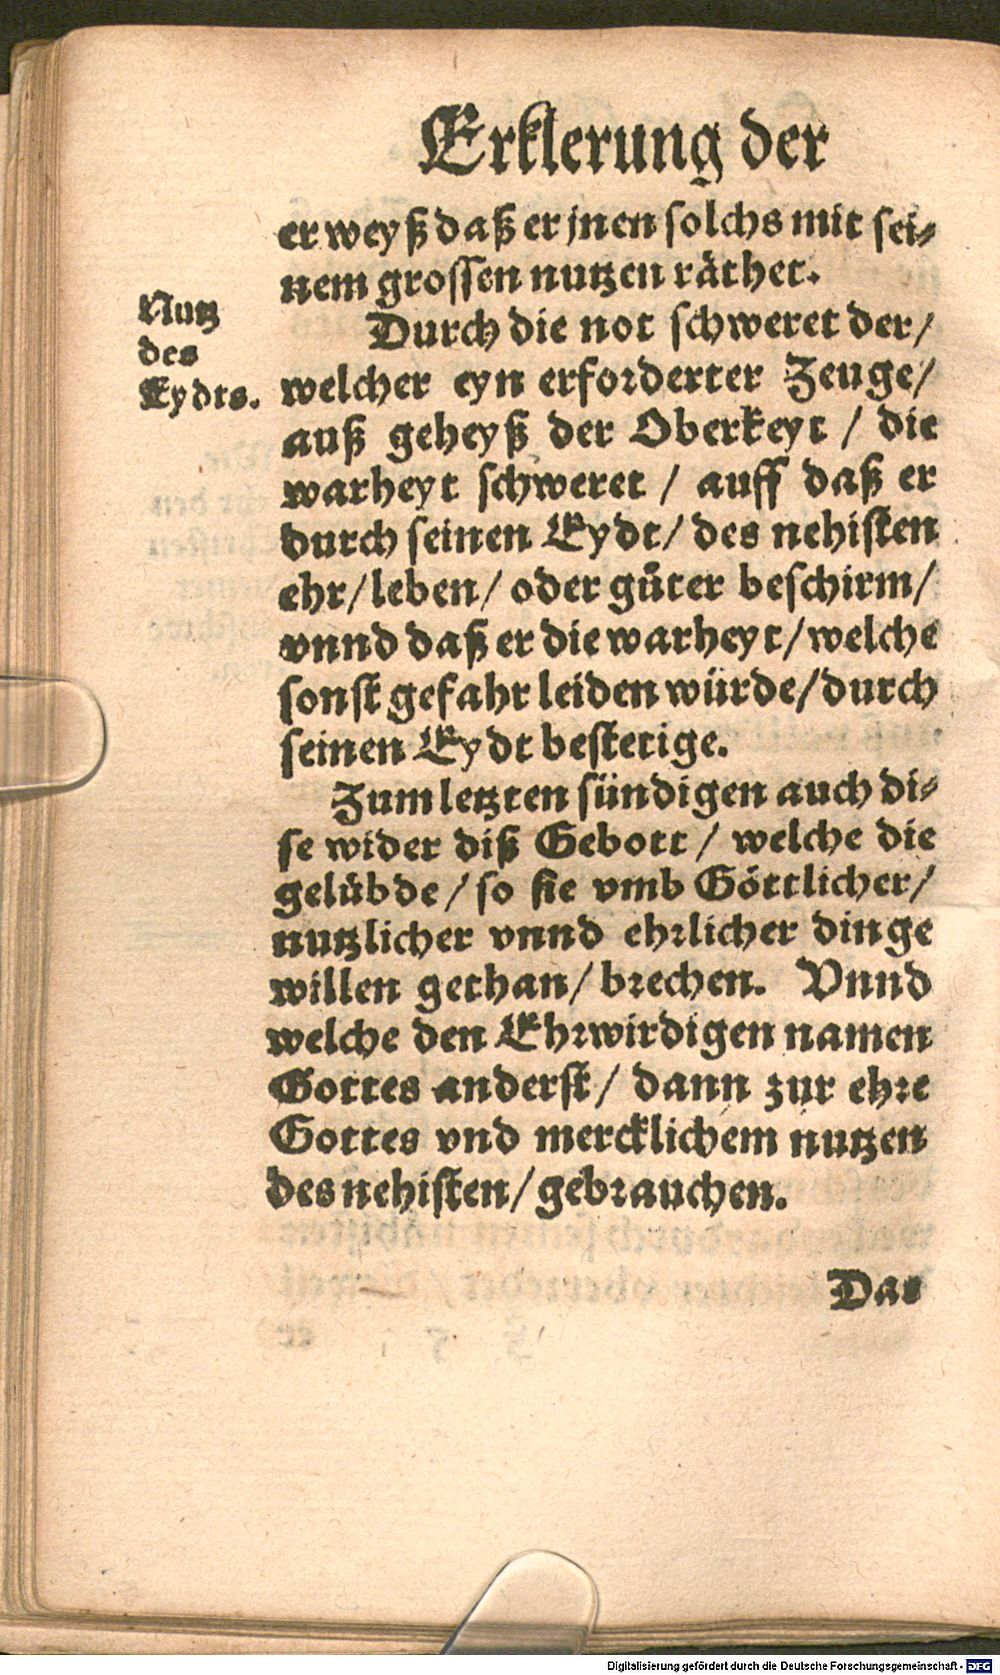 Erklerung der
er weyß daß er jnen solchs mit sei⸗
nem grossen nutzen räthet.
Nutz
des
Eydts.
Durch die not schweret der/
welcher eyn erforderter Zeuge/
auß geheyß der Oberkeyt / die
warheyt schweret / auff daß er
durch seinen Eydt/ des nehisten
ehr/ leben/ oder güter beschirm/
vnnd daß er die warheyt/ welche
sonst gefahr leiden würde/ durch
seinen Eydt bestetige.
Zum letzten sündigen auch di⸗
se wider diß Gebott / welche die
gelübde / so sie vmb Göttlicher/
nutzlicher vnnd ehrlicher dinge
willen gethan/ brechen. Vnnd
welche den Ehrwirdigen namen
Gottes anderst/ dann zur ehre
Gottes vnd mercklichem nutzen
des nehisten/ gebrauchen.
Das
Digitalisierung gefördert durch die Deutsche Forschungsgemeinschaft - DFG